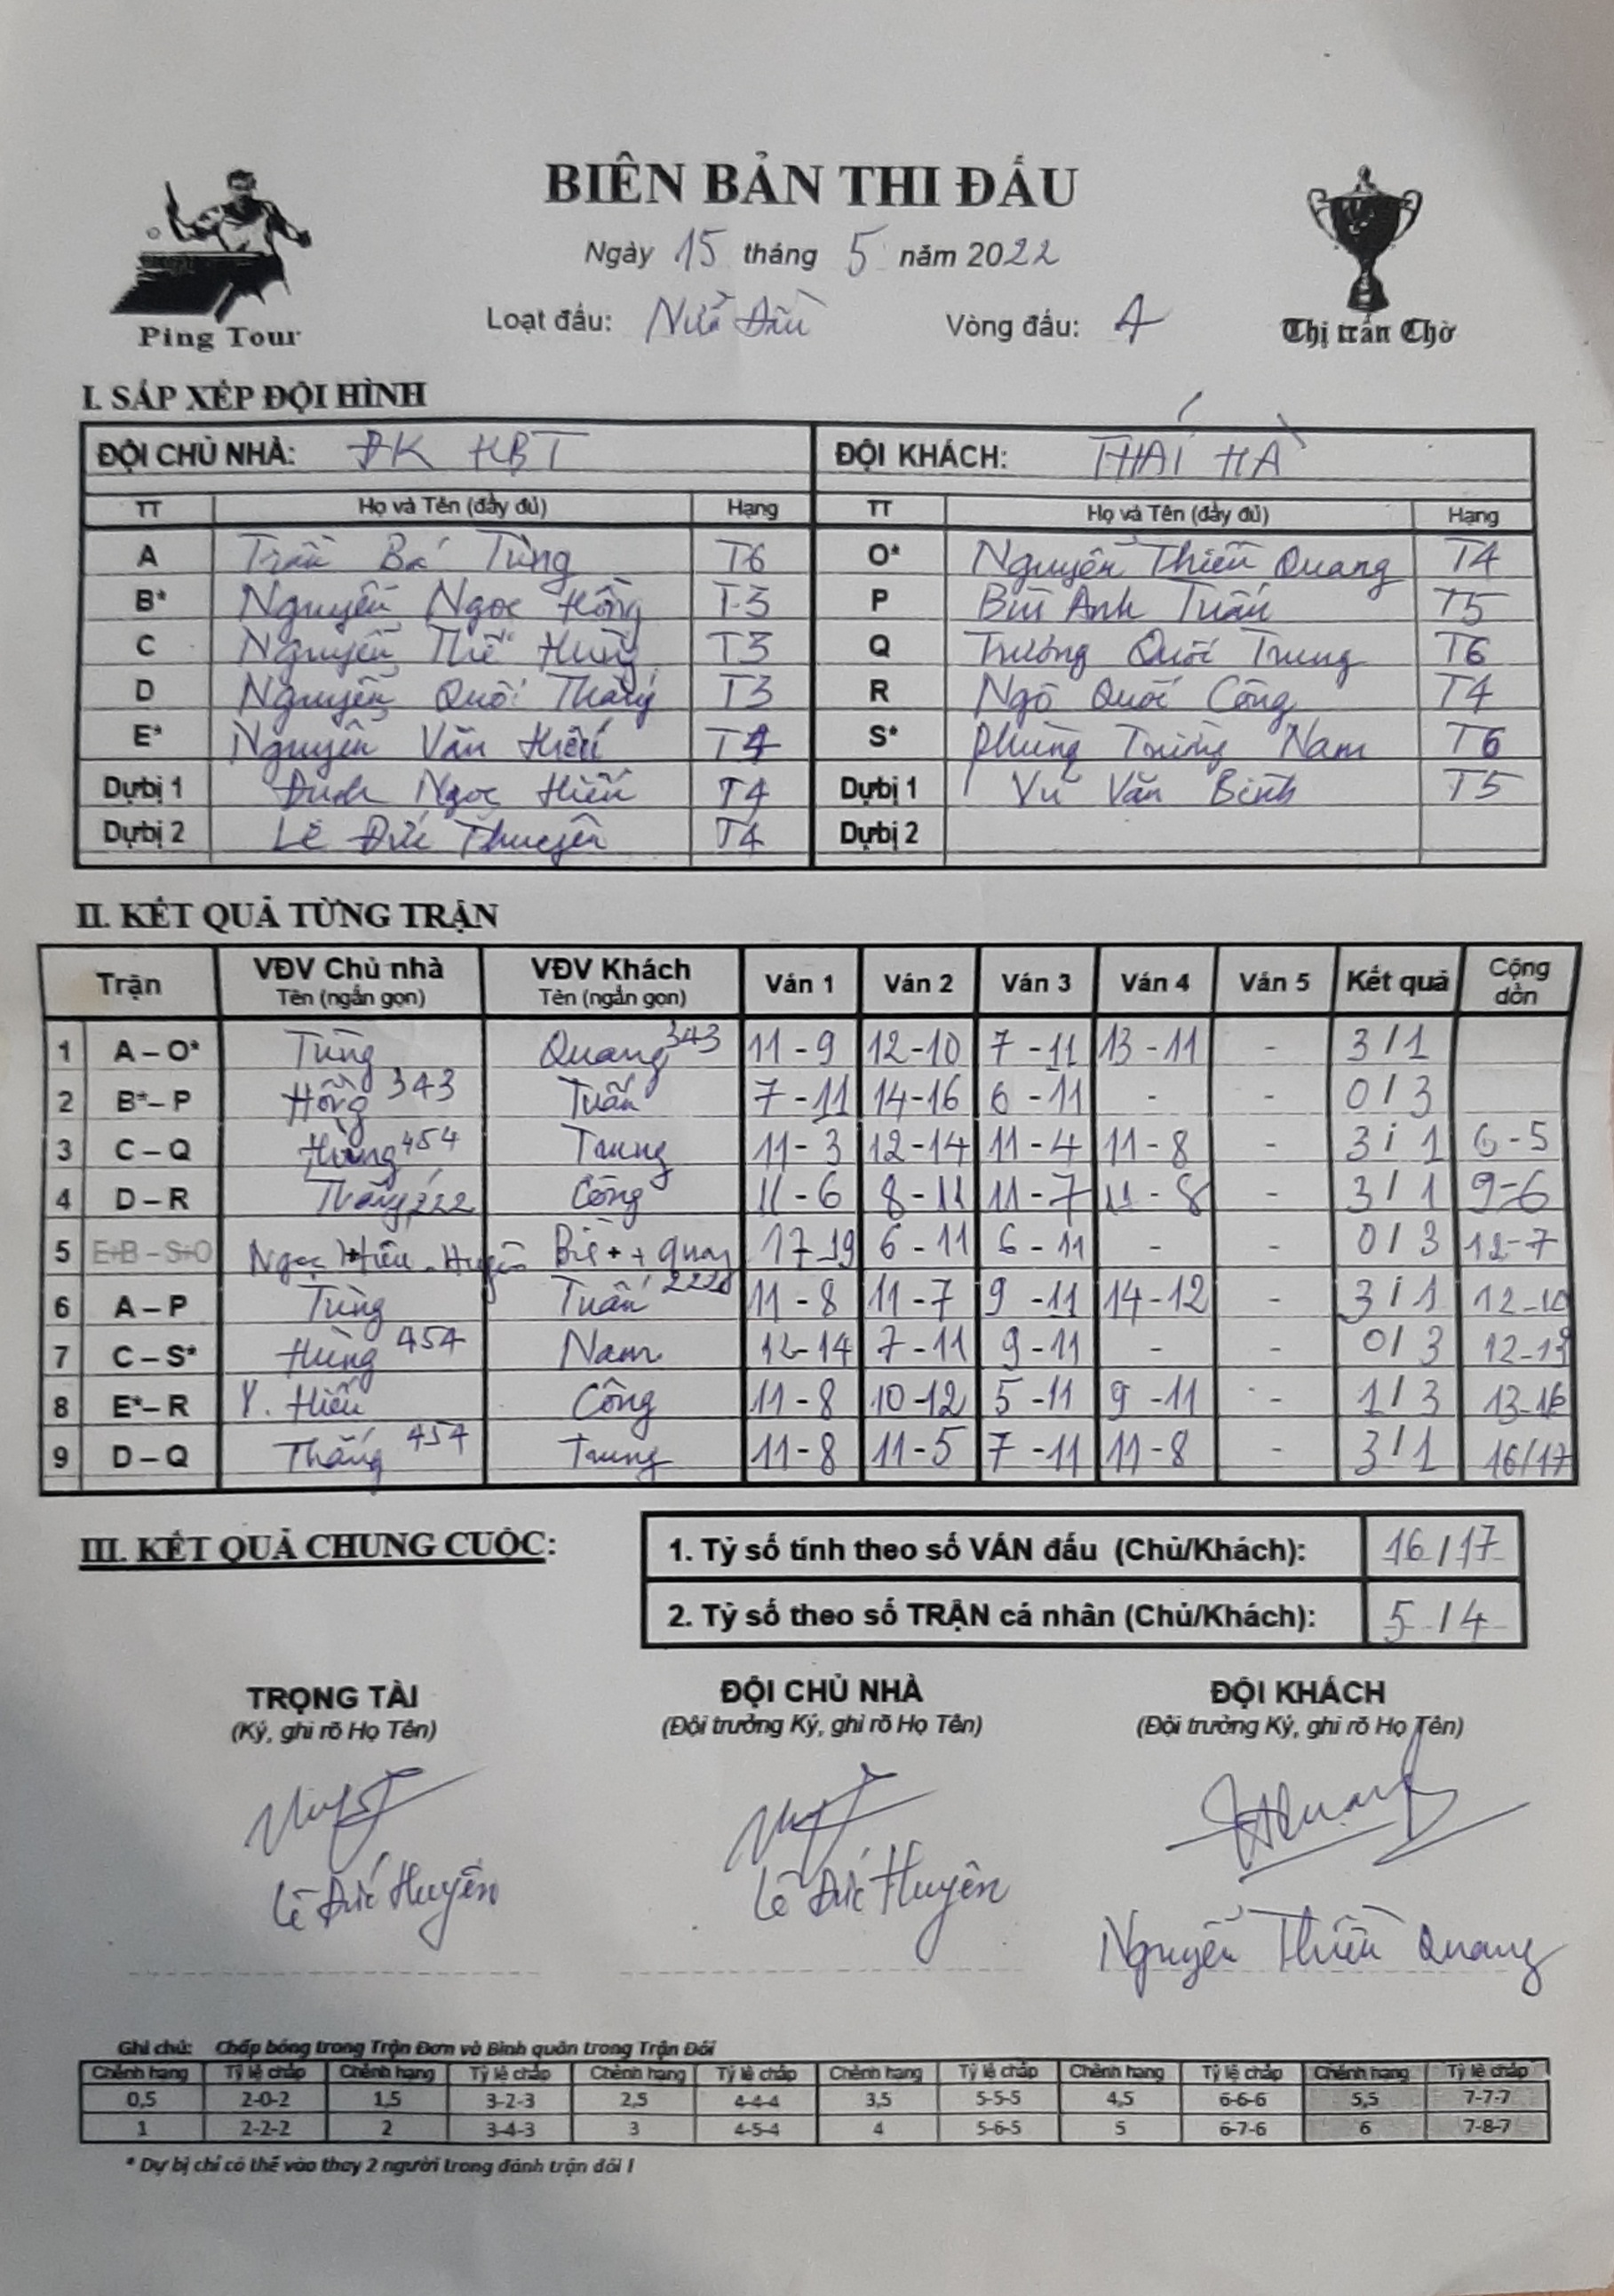 BIÊN BẢN THI ĐẤU
Ngày 15 tháng 5 năm 2022
Loạt đấu: Nửa Đầu Vòng đấu: 4
Ping Tour
Thị trấn Chờ
I. SẮP XẾP ĐỘI HÌNH
ĐỘI CHỦ NHÀ: ĐK HBT ĐỘI KHÁCH: THÁI HÀ
TT Họ và Tên (đầy đủ) Hạng TT Họ và Tên (đầy đủ) Hạng
A Trần Bá Tùng T6 O* Nguyễn Thiều Quang T4
B* Nguyễn Ngọc Hồng T3 P Bùi Anh Tuấn T5
C Nguyễn Thế Hùng T3 Q Trương Quốc Trung T6
D Nguyễn Quốc Thắng T3 R Ngô Quốc Công T4
E* Nguyễn Văn Hiếu T4 S* Phùng Trường Nam T6
Dự bị 1 Đinh Ngọc Hiếu T4 Dự bị 1 Vũ Văn Bình T5
Dự bị 2 Lê Đức T4 Dự bị 2
II. KẾT QUẢ TỪNG TRẬN
Trận VĐV Chủ nhà VĐV Khách Ván 1 Ván 2 Ván 3 Ván 4 Ván 5 Kết quả Cộng dồn
Tên (ngắn gọn) Tên (ngắn gọn)
1 A – O* Tùng Quang 343 11 - 9 12 - 10 7 - 11 13 - 11 - 3 / 1
2 B* – P Hồng 343 Tuấn 7 - 11 14 - 16 6 - 11 - - 0 / 3
3 C – Q Hùng 454 Trung 11 - 3 12 - 14 11 - 4 11 - 8 - 3 / 1 6 - 5
4 D – R Thắng 222 Công 11 - 6 8 - 11 11 - 7 11 - 8 - 3 / 1 9 - 6
5 E+B – S+O Ngọc Hiếu - + 17 - 19 6 - 11 6 - 11 - - 0 / 3 12 - 7
6 A – P Tùng Tuấn 222 11 - 8 11 - 7 9 - 11 14 - 12 - 3 / 1 12 - 10
7 C – S* Hùng 454 Nam 12 - 14 7 - 11 9 - 11 - - 0 / 3 12 - 13
8 E* – R V. Hiếu Công 11 - 8 10 - 12 5 - 11 9 - 11 - 1 / 3 13 - 16
9 D – Q Thắng 454 Trung 11 - 8 11 - 5 7 - 11 11 - 8 - 3 / 1 16/17
III. KẾT QUẢ CHUNG CUỘC:
1. Tỷ số tính theo số VÁN đấu (Chủ/Khách): 16 / 17
2. Tỷ số theo số TRẬN cá nhân (Chủ/Khách): 5 / 4
TRỌNG TÀI ĐỘI CHỦ NHÀ ĐỘI KHÁCH
(Ký, ghi rõ Họ Tên) (Đội trưởng Ký, ghi rõ Họ Tên) (Đội trưởng Ký, ghi rõ Họ Tên)
Lê Đức Huyên Lê Đức Huyên Nguyễn Thiều Quang
Ghi chú: Chấp bóng trong Trận Đơn và Bình quân trong Trận Đôi
Chênh hạng Tỷ lệ chấp Chênh hạng Tỷ lệ chấp Chênh hạng Tỷ lệ chấp Chênh hạng Tỷ lệ chấp Chênh hạng Tỷ lệ chấp Chênh hạng Tỷ lệ chấp
0,5 2-0-2 1,5 3-2-3 2,5 4-4-4 3,5 5-5-5 4,5 6-6-6 5,5 7-7-7
1 2-2-2 2 3-4-3 3 4-5-4 4 5-6-5 5 6-7-6 6 7-8-7
* Dự bị chỉ có thể vào thay 2 người trong đánh trận đôi !